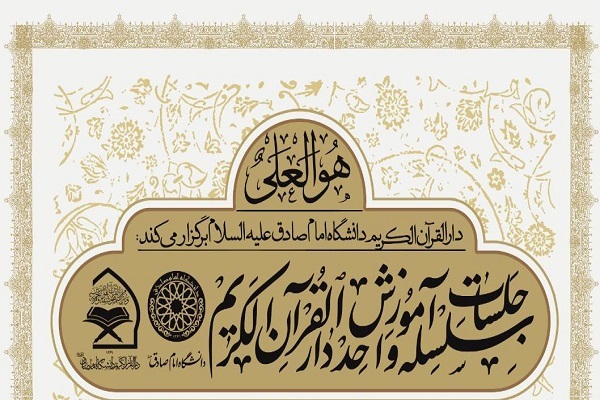 هو العلی
دارالقرآن الکریم دانشگاه امام صادق علیه السلام برگزار می کند:
سلسله جلسات آموزش
واحد دارالقرآن الکریم
دانشگاه امام صادق